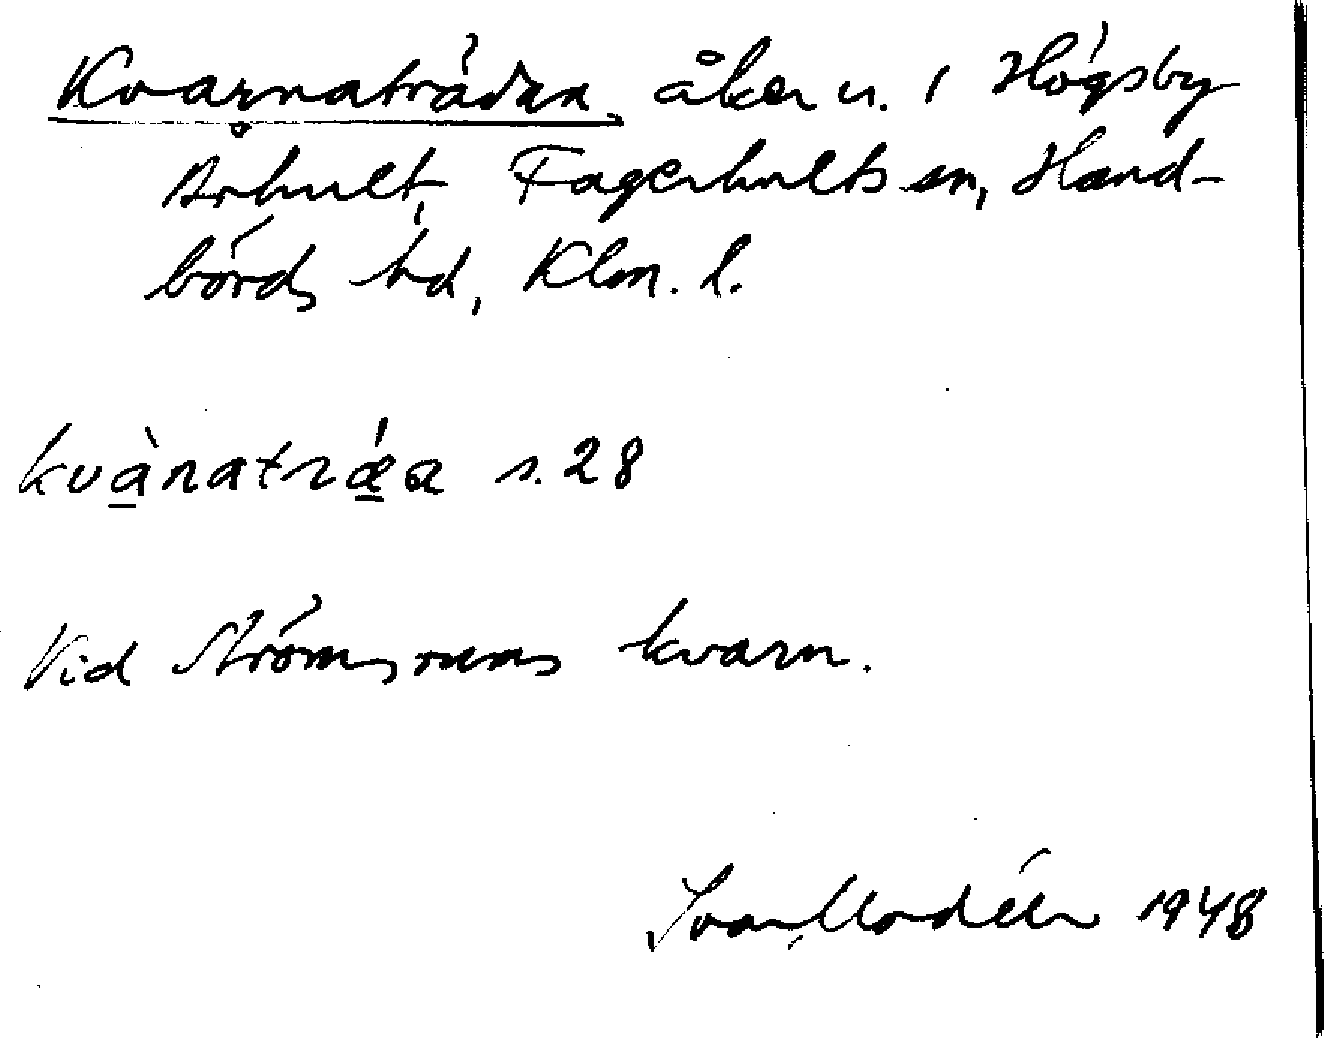 Kvarnaträdan, åker u. i Högsby
Århult, Fagerhults sn, Hand-
börds hd, Klm. l.
kvànatræ̀a s. 28
Vid Strömsrums kvarn.
Ivar Modéer 1948